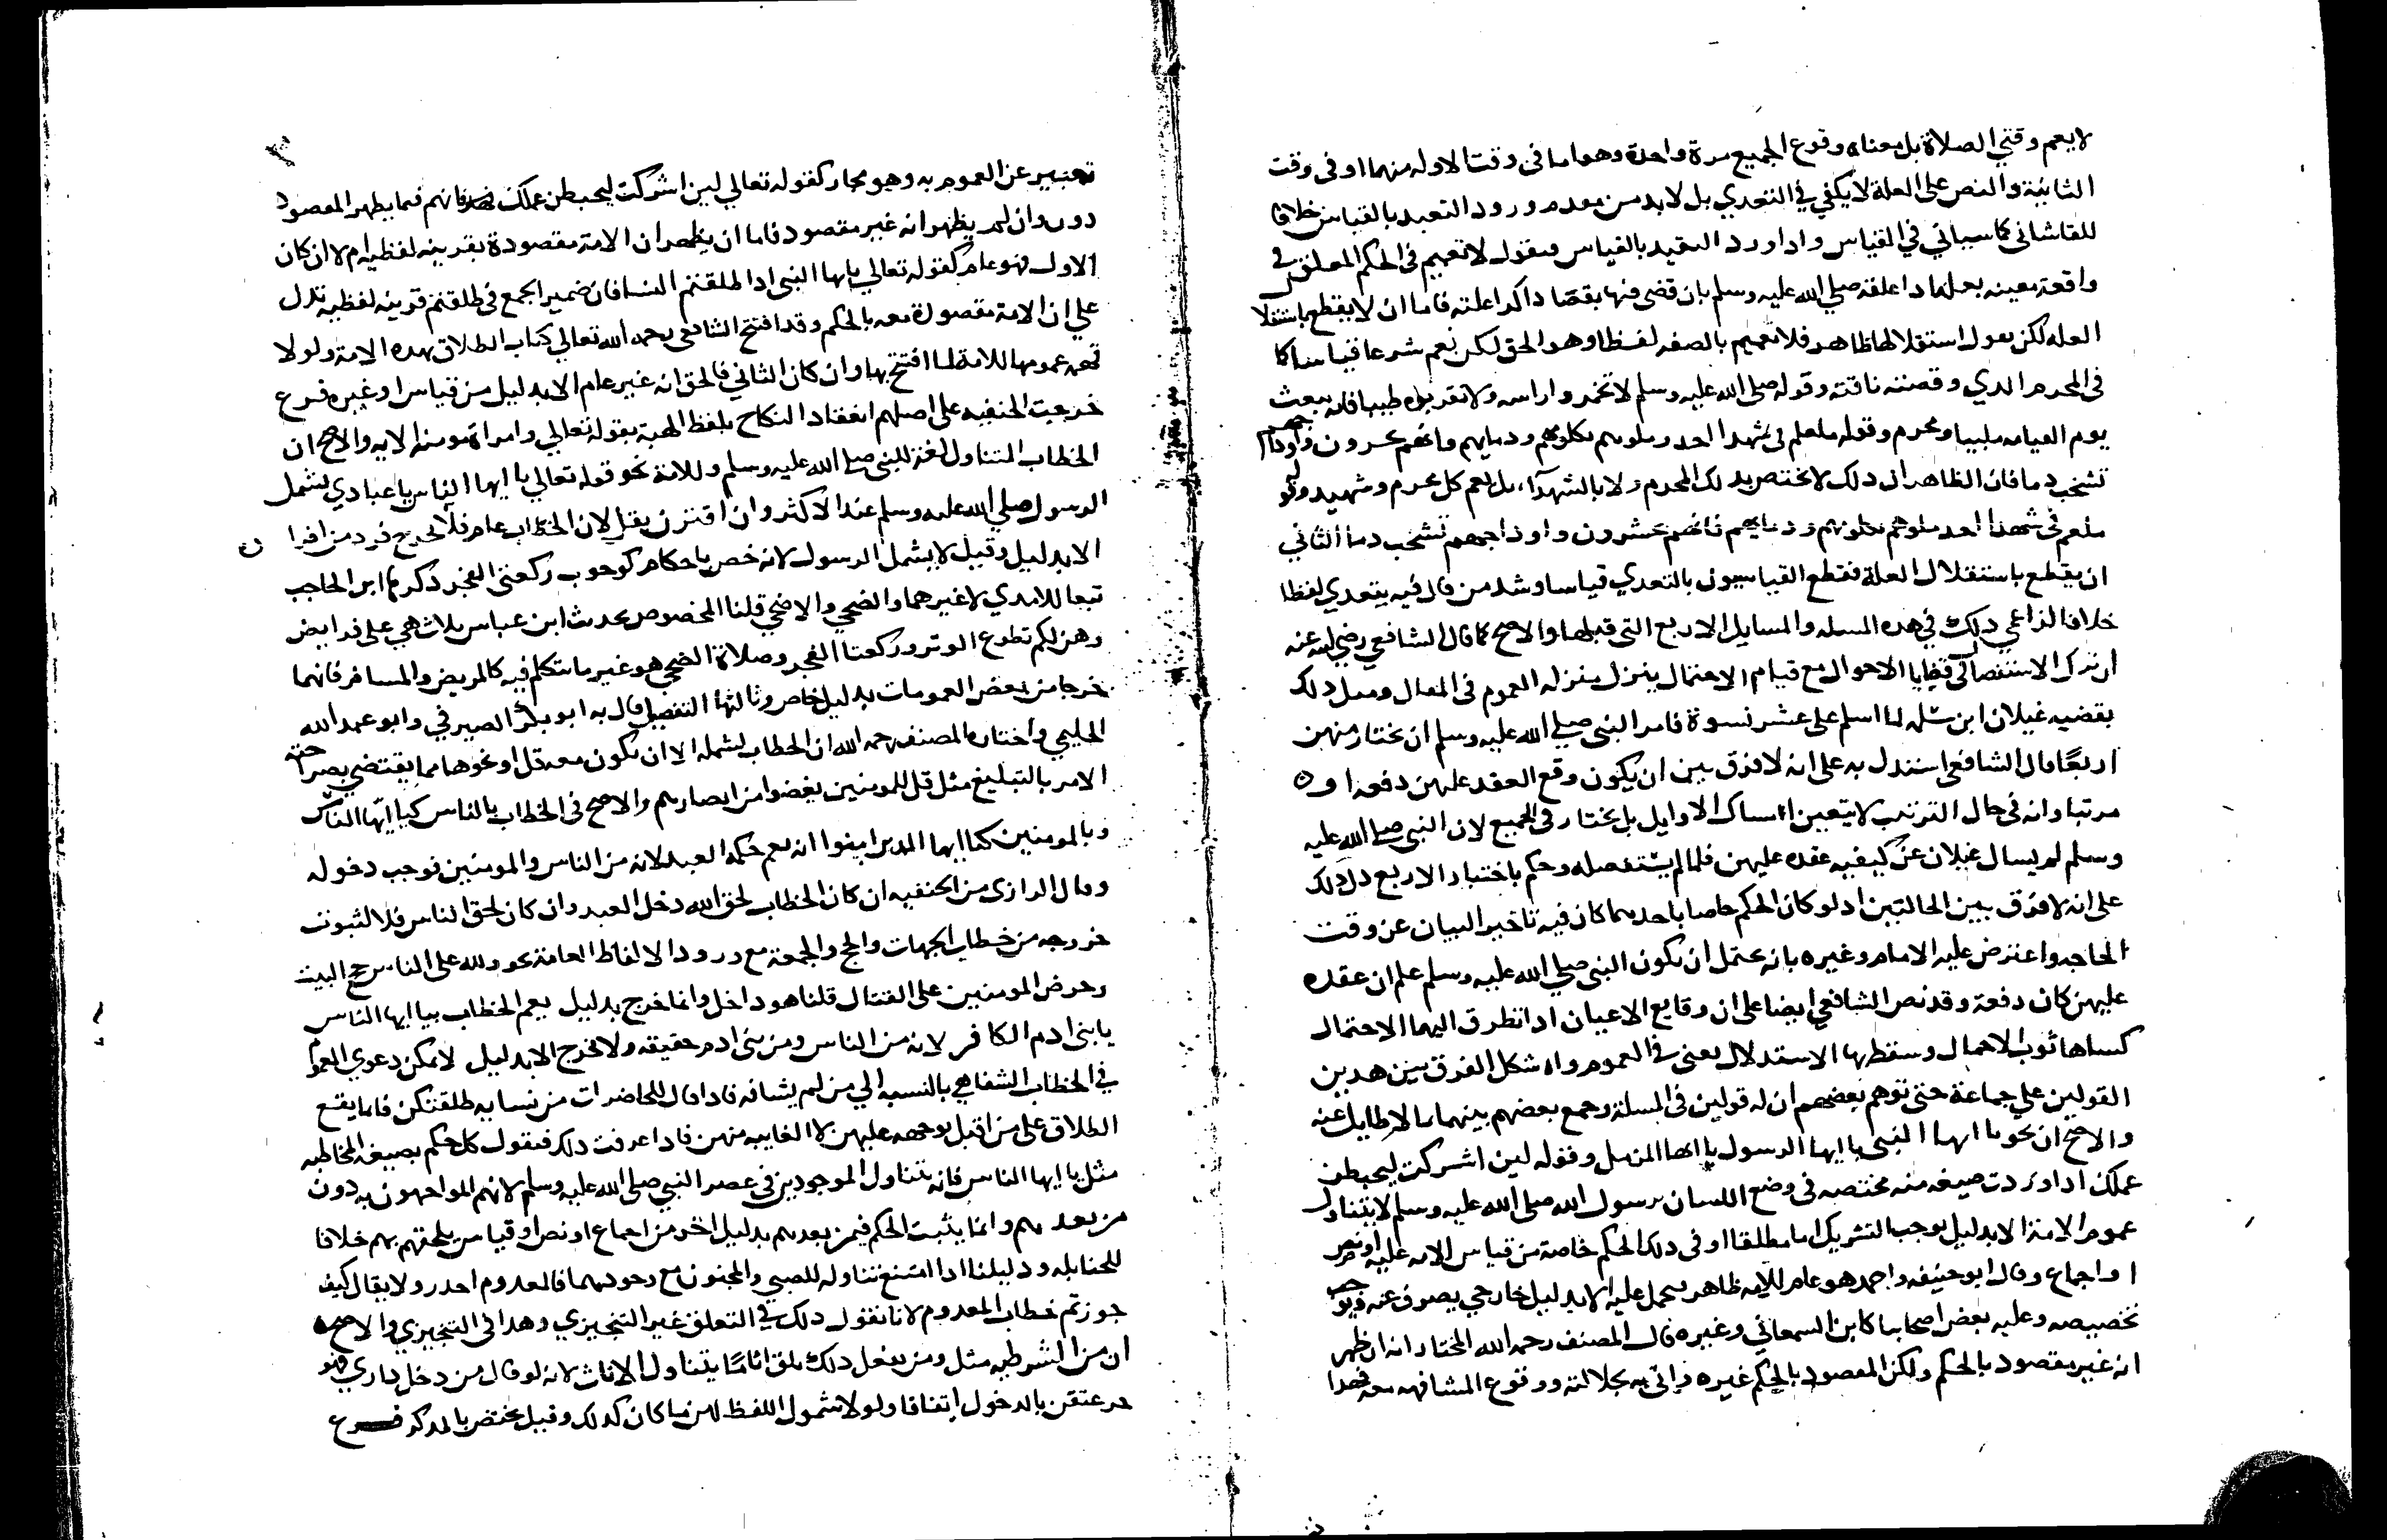 لا يعم وقتي الصلاة بل معناه وقوع الجميع مرة واحدة وهو اما في وقت الاوله منهما او في وقت
الثانية والنص على العلة لا يكفي في التعدي بل لا بد من معدم ورود التعبد بالقياس خلافا
للقاشاني كما سياتي في القياس واذا ورد التعبد بالقياس فنقول لا تعميم في الحكم المعلق في
واقعة معينه بعلة اذا علقه صلي الله عليه وسلم بان قضى فيها بقضا ذاكرا علته فاما ان لا يقطع باستقلا
العله لكن يعول استقلالها ظاهر فلا تعميم بالصغه لفظا وهو الحق لكن نعم شرعا قياسا كما
في المحرم الدي وقصته ناقته وقوله صلي الله عليه وسلم لا تخمروا راسه ولا تقربوه طيبا فانه يبعث
يوم القيامه ملبيا ومحرم وقوله ملعلم في شهدا احد زملوهم بكلومهم ودمايهم فانهم يحشرون واوداجهم
تشخب دما فان الظاهر ان دلك لا يختص بدلك المحرم ولا بالشهدآء بل يعم كل محرم وشهيد وقو
ملعم في شهدا احد زملوهم بكلومهم ودمايهم فانهم يحشرون واوداجهم تشخب دما الثاني
ان يقطع باستقلال العلة فقطع القياسيون بالتعدي قياسا وشد من قال فيه يتعدي لفظا
خلافا لزاعمي دلك في هده المسله والمسايل الاربع التي قبلها والاصح كما قال الشافعي رضي الله عنه
ان ترك الاستفصال في قضايا الاحوال مع قيام الاحتمال ينزل منزله العموم في المقال ومثل دلك
بقضيه غيلان ابن سلمه لما اسلم على عشر نسوة فامر النبي صلي الله عليه وسلم ان يختار منهن
اربعًا قال الشافعي استدل به على انه لا فرق بين ان يكون وقع العقد علهن دفعه او
مرتبا وانه في حال الترتيب لا يتعين امساك الاوايل بل يختار في الجميع لان النبي صلي الله عليه
وسلم لم يسال غيلان عن كيفيه عقده عليهن فلما لم يستفصله وحكم باختيار الاربع دل دلك
على انه لا فرق بين الحالتين اد لو كان الحكم خاصا باحدهما كان فيه تاخير البيان عن وقت
الحاجه واعترض عليه الامام وغيره بانه يحتمل ان يكون النبي صلي الله عليه وسلم علم ان عقده
عليهن كان دفعة وقد نص الشافعي ايضا على ان وقايع الاعيان ادا تطرق اليها الاحتمال
كساها ثوب الاجمال وسقط بها الاستدلال يعني في العموم واستشكل الفرق بين هدين
القولين علي جماعة حتى توهم بعضهم ان له قولين في المسلة وجمع بعضهم بينهما بما لا طايل عنه
والاصح ان نحو يا ايها النبي يا ايها الرسول يا ايها المزمل وقوله لين اشركت ليحبطن
عملك ادا وردت صيغه منه مختصه في وضع اللسان برسول الله صلي الله عليه وسلم لا يتناول
عموم الامة الا بدليل يوجب التشريك اما مطلقا او في دلك الحكم خاصة من قياس الامه عليه او نص
او اجماع وقال ابو حنيفه واحمد هو عام للامه ظاهر يحمل عليه الا بدليل خارجي يصرف عنه فيوجب
تخصيصه وعليه بعض اصحابنا كابن السمعاني وغيره قال المصنف رحمه الله المختار انه ان ظهر
انه غير مقصود بالحكم ولكن المقصود بالحكم غيره واتى به بجلالته ووقوع المشافهه معه فهدا
تعبير عن العموم به وهو مجاز كقوله تعالي لين اشركت ليحبطن عملك فانهم فما يظهر المقصود
دون وان لم يظهر انه غير مقصود فاما ان يظهر ان الامة مقصودة بقرينه لفظيه ام لا ان كان
الاول فهو عام كقوله تعالي يايها النبي ادا طلقتم النسا فان ضمير الجمع في طلقتم قرينه لفظيه تدل
علي ان الامة مقصودة معه بالحكم وقد افتتح الشافعي رحمه الله تعالي كتاب الطلاق بهده الاية ولولا
فهم عمومها للامة لما افتتح بها وان كان الثاني فالحق انه غير عام الا بدليل من قياس او غيره فرع
خرجت الحنفيه على اصلهم انعقاد النكاح بلفظ الهبة بقوله تعالي وامراة مومنه الايه والاصح ان
الخطاب المتناول لغة للنبي صلي الله عليه وسلم وللامة نحو قوله تعالي يا ايها الناس يا عبادي يشمل
الرسول صلي الله عليه وسلم عند الاكثر وان اقترن بقل لان الخطاب عام فلا يخرج فرد من افرا
الا بدليل وقيل لا يشمل الرسول لانه خص باحكام كوجوب ركعتي الفجر ذكرها ابن الحاجب
تبعا للامدي لا غيرهما والضحي والاضحي قلنا المخصوص بحديث ابن عباس ثلاث هي على فرايض
وهن لكم تطوع الوتر وركعتا الفجر وصلاة الضحي هو غير ما نتكلم فيه كالمريض والمسافر فانهما
خرجا من بعض العمومات بدليل خاص وثالثها التفصيل قال به ابو بكر الصيرفي وابو عبد الله
الحليمي واختاره المصنف رحمه الله ان الخطاب يشمله الا ان يكون معه قل او نحوها مما يقتضي بصراحته
الامر بالتبليغ مثل قل للمومنين يغضوا من ابصارهم والاصح في الخطاب بالناس كيا ايّها الناس
وبالمومنين كيا ايها الدين امنوا انه يعم حكمه العبد لانه من الناس والمومنين فوجب دخوله
وقال الرازي من الحنفيه ان كان الخطاب لحق الله دخل العبد وان كان لحق الناس فلا لثبوت
خروجه من خطاب الجهات والحج والجمعة مع ورود الالفاظ العامة نحو ولله على الناس حج البيت
وحرض المومنين على القتال قلنا هو داخل وانما خرج بدليل يعم الخطاب بيا ايها الناس
يا بنى ادم الكافر لانه من الناس ومن بني ادم حقيقه ولا يخرج الا بدليل لا يمكن دعوي العموم
في الخطاب الشفاهي بالنسبه الي من لم يشافه فادا قال للحاضرات من نسايه طلقتكن فانما يقع
الطلاق على من اقبل بوجهه عليهن لا الغايبه منهن فادا عرفت دلك فنقول كل حكم بصيغه المخاطبه
مثل يا ايها الناس فانه يتناول الموجودين في عصر النبي صلي الله عليه وسلم لانهم المواجهون به دون
من بعدهم وانما يثبت الحكم فيمن بعدهم بدليل اخر من اجماع او نص او قياس يلحقهم بهم خلافا
للحنابله ودليلنا ادا امتنع تناوله للصبي والمجنون مع وجودهما فالمعدوم اجدر ولا يقال كيف
جوزتم خطاب المعدوم لانا نقول دلك في التعلق غير التنجيزي وهدا في التنجيزي والاصح
ان من الشرطيه مثل ومن يفعل دلك يلق اثامًا يتناول الاناث لانه لو قال من دخل داري فهو
حر عتقن بالدخول اتفاقا ولولا شمول اللفظ لهن ما كان كدلك وقيل يختص بالمدكر فرع